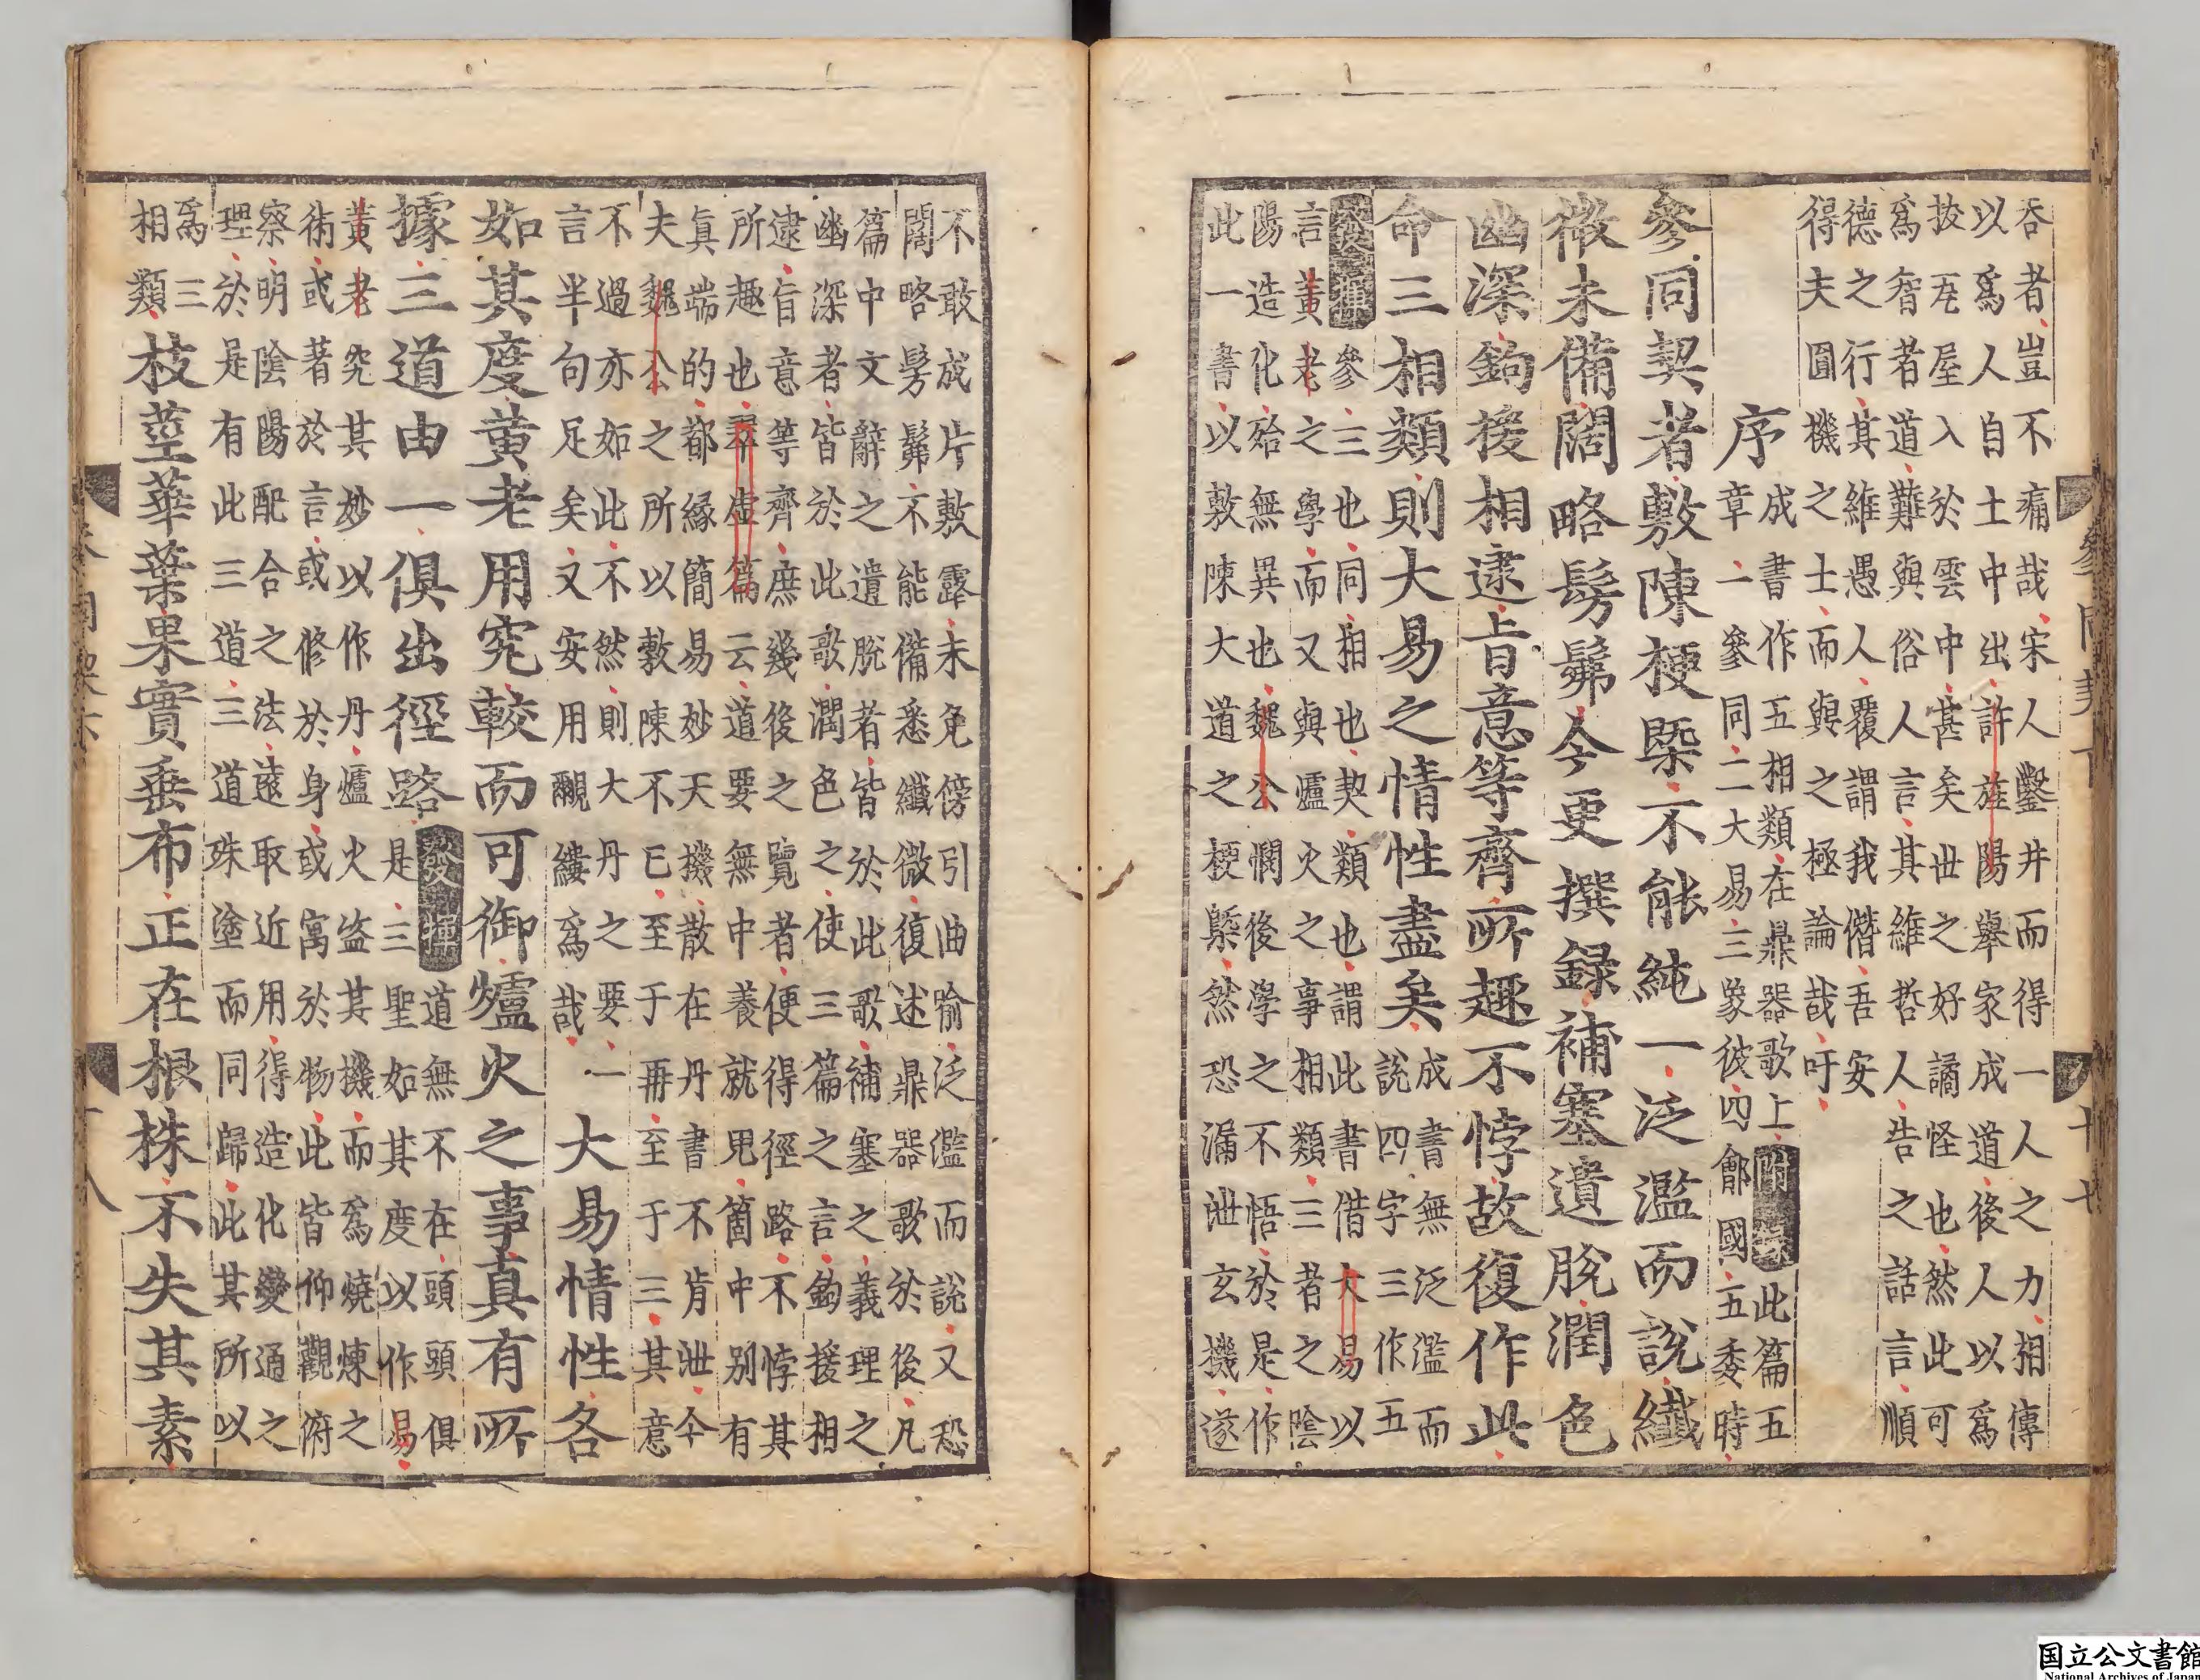 吞者豈不痛哉宋人鑿井而得一人之力相傳
以爲人自土中出許旌陽舉家成道後人以爲
拔宅屋入於雲中甚矣世之好譎怪也然此可
爲智者道難與俗人言其維哲人告之話言順
德之行其維愚人覆謂我僭吾安
得夫圓機之士而與之極論哉吁
序
成書作五相類在鼎器歌上附錄此篇五
章一參同二大易三象彼四鄶國五委時
參同契者敷陳梗槩不能純一泛濫而說纖
微未備闊略髣髴今更撰録補塞遺脫潤色
幽深鉤援相逮旨意等齊所趣不悖故復作此
命三相類則大易之情性盡矣
成書無泛濫而
說四字三作五
發揮參三也同相也契類也謂此書借大易以
言黃老之學而又與爐火之事相類三者之陰
陽造化殆無異也魏公憫後學之不悟於是作
此一書以敷陳大道之梗槩然恐漏泄玄機遂
參同契下
十七
不敢成片敷露未免傍引曲喻泛濫而說又恐
闊略髣髴不能備悉纖微復述鼎器歌於後凡
篇中文辭之遺脫者皆於此歌補塞之義理之
幽深者皆於此歌潤色之使三篇之言鉤援相
逮旨意等齊庶幾後之覽者便得徑路不悖其
所趣也翠虛篇云道要無中養就兒箇中別有
眞端的都緣簡易妙天機散在丹書不肯泄今
夫魏公之所以敷陳不已至于再至于三其意
不過亦如此不然則大丹之要一
言半句足矣又安用覼縷爲哉
大易情性各
如其度黃老用究較而可御爐火之事真有所
據三道由一俱出徑路
發揮道無不在頭頭俱
是三聖如其度以作易
黃老究其妙以作丹爐火盜其機而爲燒煉之
術或著於言或修於身或寓於物此皆仰觀俯
察明陰陽配合之法遠取近用得造化變通之
理於是有此三道三道殊塗而同歸此其所以
爲三
相類
枝莖華葉果實垂布正在根株不失其素
參同契下
十八
国立公文書館
National Archives of Japan